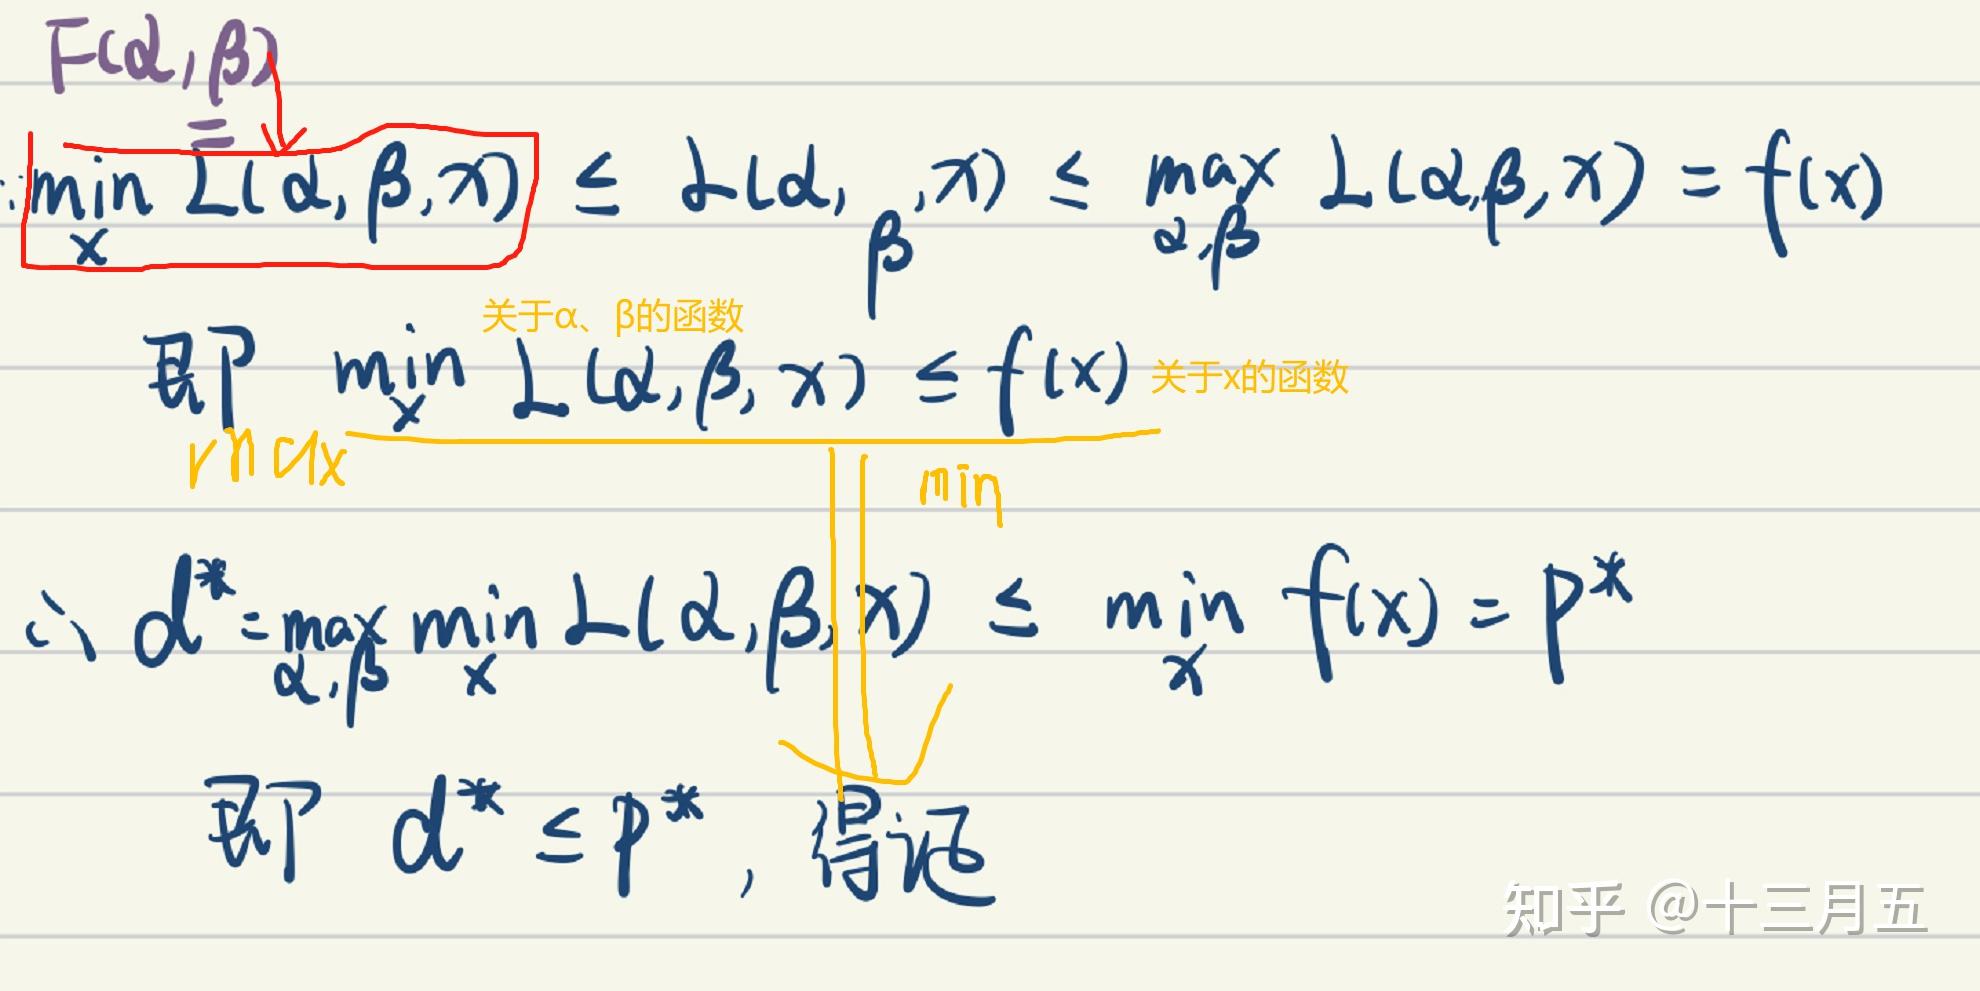 F(α,β)
=
∴ min L(α,β,x) ≤ L(α, β,x) ≤ max L(α,β,x) = f(x)
x α,β
关于α、β的函数
即 min L(α,β,x) ≤ f(x) 关于x的函数
x
max min
∴ d*=max min L(α,β,x) ≤ min f(x) = p*
α,β x x
即 d* ≤ p*, 得证
知乎 @十三月五